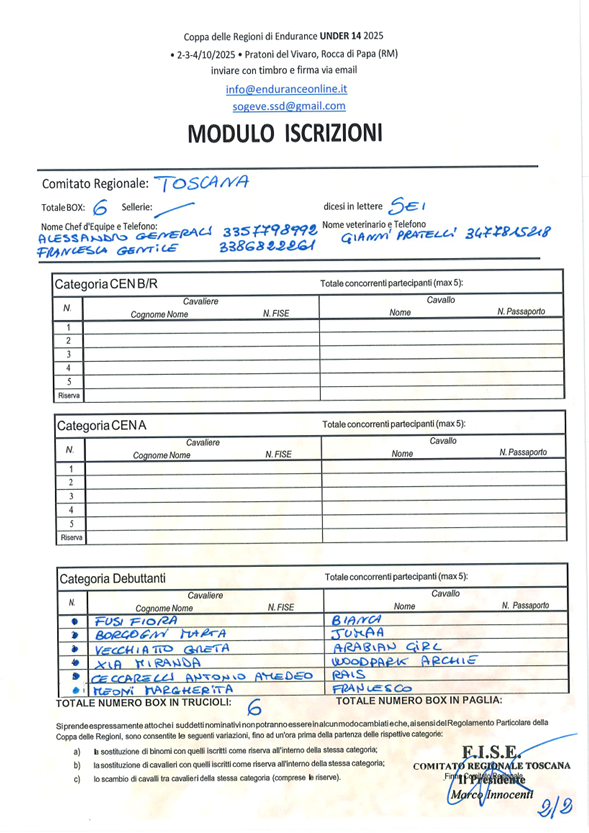 Coppa delle Regioni di Endurance UNDER 14 2025
• 2-3-4/10/2025 • Pratoni del Vivaro, Rocca di Papa (RM)
inviare con timbro e firma via email
info@enduranceonline.it
sogeve.ssd@gmail.com
MODULO ISCRIZIONI
Comitato Regionale: TOSCANA
Totale BOX: 6 Sellerie: dicesi in lettere SEI
Nome Chef d'Equipe e Telefono: Nome veterinario e Telefono
ALESSANDRO GENERALI 3357798992 GIANNI PRATELLI 3477815218
FRANCESCA GENTILE 3386822261
Categoria CEN B/R Totale concorrenti partecipanti (max 5):
N. Cavaliere Cavallo
Cognome Nome N. FISE Nome N. Passaporto
1
2
3
4
5
Riserva
Categoria CEN A Totale concorrenti partecipanti (max 5):
N. Cavaliere Cavallo
Cognome Nome N. FISE Nome N. Passaporto
1
2
3
4
5
Riserva
Categoria Debuttanti Totale concorrenti partecipanti (max 5):
N. Cavaliere Cavallo
Cognome Nome N. FISE Nome N. Passaporto
FUSI FIORA BIANCA
BORGOGNI MARTA JUMAA
VECCHIATTO GRETA ARABIAN GIRL
XIA MIRANDA WOODPARK ARCHIE
CECCARELLI ANTONIO AMEDEO RAIS
MEONI MARGHERITA FRANCESCO
TOTALE NUMERO BOX IN TRUCIOLI: 6 TOTALE NUMERO BOX IN PAGLIA:
Si prende espressamente atto che i suddetti nominativi non potranno essere in alcun modo cambiati e che, ai sensi del Regolamento Particolare della
Coppa delle Regioni, sono consentite le seguenti variazioni, fino ad un'ora prima della partenza delle rispettive categorie:
a) la sostituzione di binomi con quelli iscritti come riserva all'interno della stessa categoria;
b) la sostituzione di cavalieri con quelli iscritti come riserva all'interno della stessa categoria;
c) lo scambio di cavalli tra cavalieri della stessa categoria (comprese le riserve).
F.I.S.E.
COMITATO REGIONALE TOSCANA
Firma Comitato Regionale
Il Presidente
Marco Innocenti
2/2